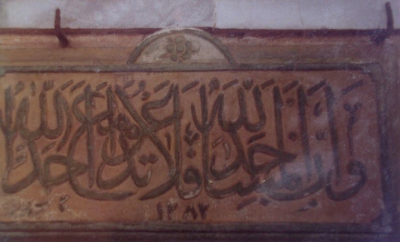 وأن المساجد لله فلا تدعوا مع الله أحدا
١٢٨٢